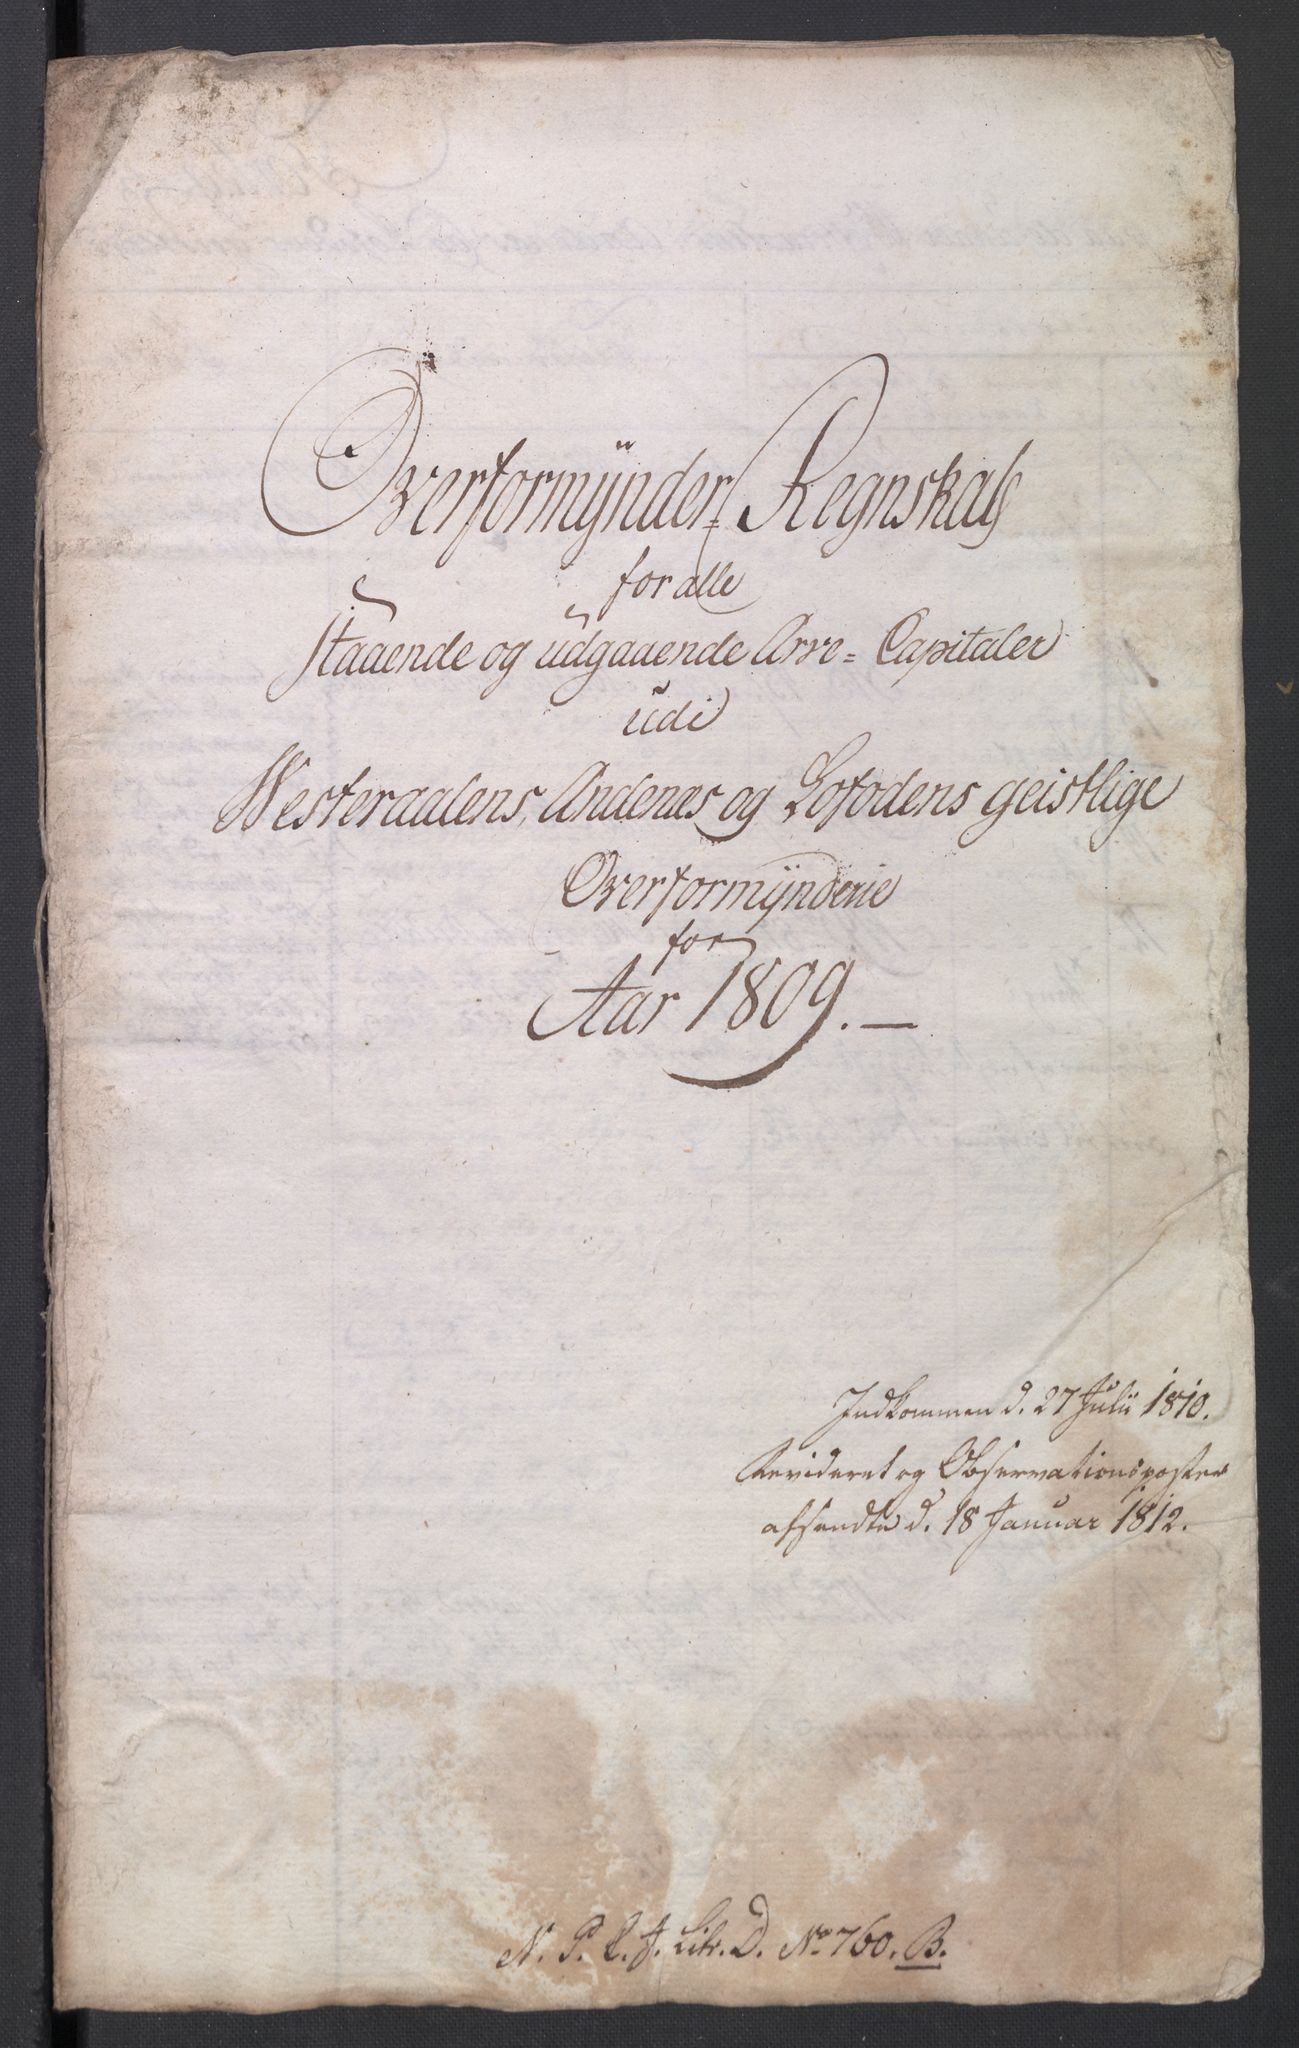 Overformÿnder= Regnskab
for alle
Staaende og udgaaende Arve= Capitaler
udi
Westeraalens, Andenæs og Lofodens geistlige
Overformÿnderie
for
Aar 1809. —
Indkommen d. 27 Julii 1810.
Revideret og Observationsposter
afsendte d. 18 Januar 1812.
N. P. C. J. Litr. D. No 760. B.